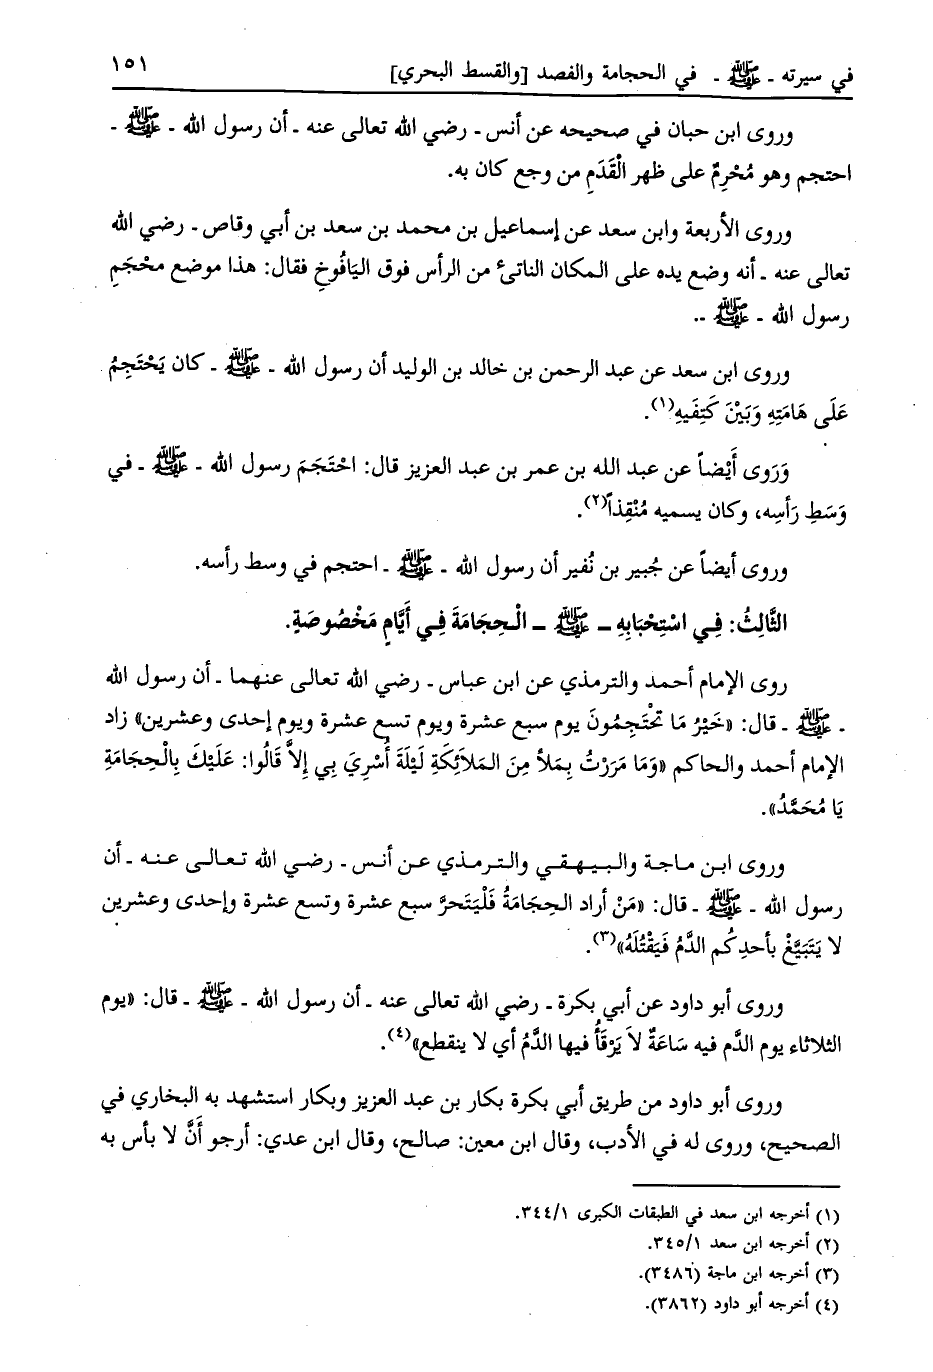 في سيرته ـ ﷺ ـ في الحجامة والفصد [والقسط البحري] ١٥١
وروى ابن حبان في صحيحه عن أنس ـ رضي الله تعالى عنه ـ أن رسول الله ـ ﷺ ـ
احتجم وهو مُحْرِمٌ على ظهر الْقَدَمِ من وجع كان به.
وروى الأربعة وابن سعد عن إسماعيل بن محمد بن سعد بن أبي وقاص ـ رضي الله
تعالى عنه ـ أنه وضع يده على المكان الناتئ من الرأس فوق اليَافُوخِ فقال: هذا موضع محْجَمِ
رسول الله ـ ﷺ ـ.
وروى ابن سعد عن عبد الرحمن بن خالد بن الوليد أن رسول الله ـ ﷺ ـ كان يَحْتَجِمُ
عَلَى هَامَتِهِ وَبَيْنَ كَتِفَيهِ(١).
وَرَوى أَيْضاً عن عبد الله بن عمر بن عبد العزيز قال: احْتَجَمَ رسول الله ـ ﷺ ـ في
وَسَطِ رَأسِه، وكان يسميه مُنْقِذاً(٢).
وروى أيضاً عن جُبير بن نُفير أن رسول الله ـ ﷺ ـ احتجم في وسط رأسه.
الثَّالِثُ: فِي اسْتِحْبَابِهِ ـ ﷺ ـ الْحِجَامَةَ فِي أَيَّامٍ مَخْصُوصَةٍ.
روى الإمام أحمد والترمذي عن ابن عباس ـ رضي الله تعالى عنهما ـ أن رسول الله
ـ ﷺ ـ قال: «خَيْرُ مَا تَحْتَجِمُونَ يوم سبع عشرة ويوم تسع عشرة ويوم إحدى وعشرين» زاد
الإمام أحمد والحاكم «وَمَا مَرَرْتُ بِمَلأ مِنَ المَلائِكَةِ لَيْلَةَ أُسْرِيَ بِي إِلاَّ قَالُوا: عَلَيْكَ بِالْحِجَامَةِ
يَا مُحَمَّدُ».
وروى ابن ماجة والبيهقي والترمذي عن أنس ـ رضي الله تعالى عنه ـ أن
رسول الله ـ ﷺ ـ قال: «مَنْ أراد الحِجَامةُ فَلْيَتَحرَّ سبع عشرة وتسع عشرة وإحدى وعشرين
لا يَتَبَيَّغْ بأحدِكُم الدَّمُ فَيَقْتُلَهُ»(٣).
وروى أبو داود عن أبي بكرة ـ رضي الله تعالى عنه ـ أن رسول الله ـ ﷺ ـ قال: «يوم
الثلاثاء يوم الدَّم فيه سَاعَةٌ لاَ يَرْقَأُ فيها الدَّمُ أي لا ينقطع»(٤).
وروى أبو داود من طريق أبي بكرة بكار بن عبد العزيز وبكار استشهد به البخاري في
الصحيح، وروى له في الأدب، وقال ابن معين: صالح، وقال ابن عدي: أرجو أَنَّ لا بأس به
(١) أخرجه ابن سعد في الطبقات الكبرى ٣٤٤/١.
(٢) أخرجه ابن سعد ٣٤٥/١.
(٣) أخرجه ابن ماجة (٣٤٨٦).
(٤) أخرجه أبو داود (٣٨٦٢).